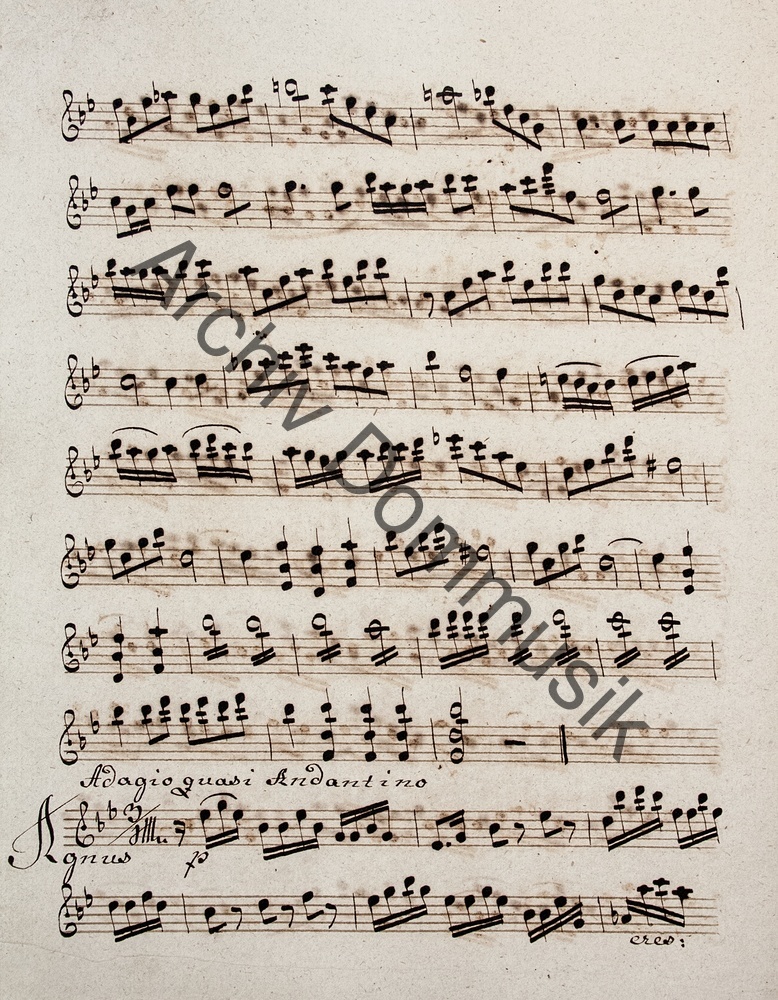 Archiv Dommusik
Adagio quasi Andantino
Agnus p
cres: